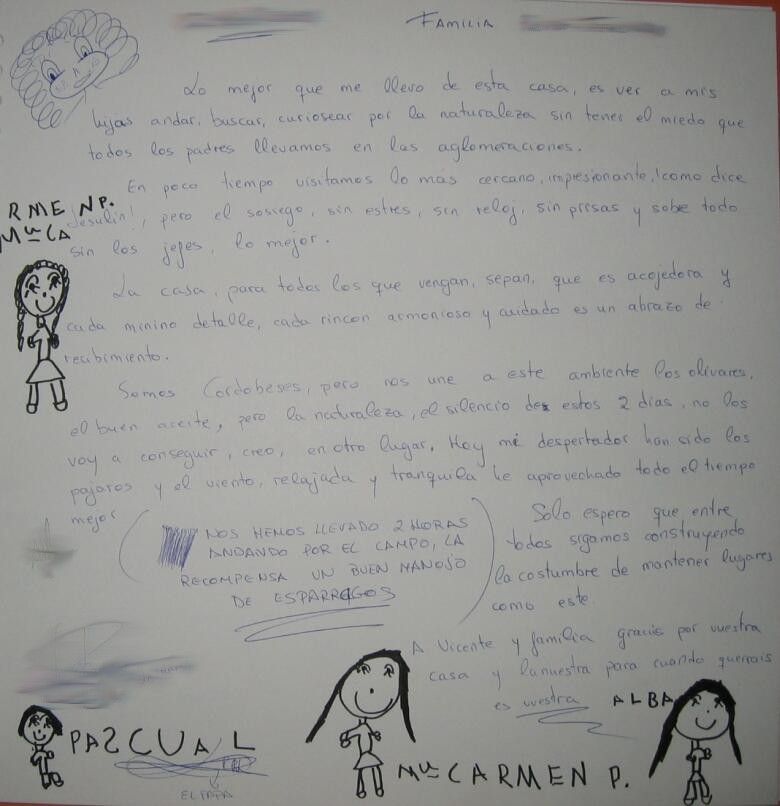 FAMILIA
Lo mejor que me llevo de esta casa, es ver a mis
hijas andar, buscar, curiosear por la naturaleza sin tener el miedo que
todos los padres llevamos en las aglomeraciones.
En poco tiempo visitamos lo más cercano, impresionante, ¡como dice
Jesulin!, pero el sosiego, sin estres, sin reloj, sin prisas y sobe todo
sin los jefes, lo mejor.
RMEN P.
Mª CA
La casa, para todos los que vengan, sepan, que es acojedora y
cada minino detalle, cada rincon armonioso y cuidado es un abrazo de
recibimiento.
Somos Cordobeses, pero nos une a este ambiente los olivares,
el buen aceite, pero la naturaleza, el silencio de estos 2 dias, no los
voy a conseguir, creo, en otro lugar. Hoy mi despertador han sido los
pajaros y el viento, relajada y tranquila he aprovechado todo el tiempo
mejor
NOS HEMOS LLEVADO 2 HORAS
ANDANDO POR EL CAMPO, LA
RECOMPENSA UN BUEN MANOJO
DE ESPARRAGOS
Solo espero que entre
todos sigamos construyendo
la costumbre de mantener lugares
como este.
A Vicente y familia gracias por vuestra
casa y la nuestra para cuando querais
es vuestra
ALBA
PASCUAL
EL PAPA
Mª CARMEN P.